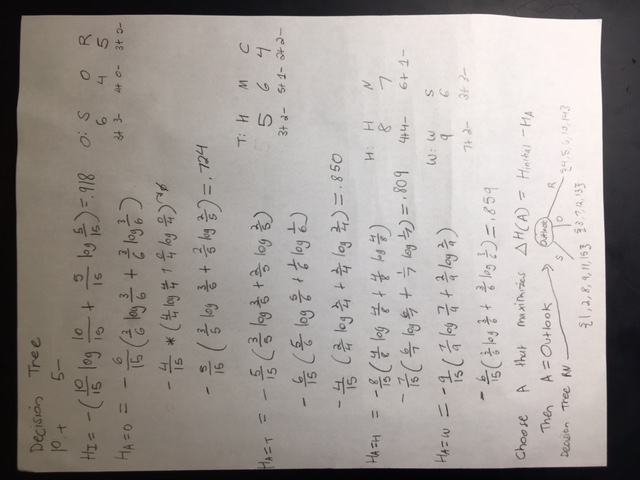 Decision Tree
10+ 5-
H_I = -(10/15 log 10/15 + 5/15 log 5/15) = .918
O: S O R
6 4 5
3+ 3- 4+ 0- 3+ 2-
H_A=O = -6/15 (3/6 log 3/6 + 3/6 log 3/6)
- 4/15 * (4/4 log 4/4 + 0/4 log 0/4)
- 5/15 (3/5 log 3/5 + 2/5 log 2/5) = .724
T: H M C
5 6 4
3+ 2- 5+ 1- 2+ 2-
H_A=T = -5/15 (3/5 log 3/5 + 2/5 log 2/5)
- 6/15 (5/6 log 5/6 + 1/6 log 1/6)
- 4/15 (2/4 log 2/4 + 2/4 log 2/4) = .850
H: H N
8 7
4+4- 6+ 1-
H_A=H = -8/15 (4/8 log 4/8 + 4/8 log 4/8)
- 7/15 (6/7 log 6/7 + 1/7 log 1/7) = .809
W: W S
9 6
7+ 2- 3+ 3-
H_A=W = -9/15 (7/9 log 7/9 + 2/9 log 2/9)
- 6/15 (3/6 log 3/6 + 3/6 log 3/6) = .859
Choose A that maximizes ΔH(A) = H_initial - H_A
Then A = Outlook
Outlook
Decision Tree RN
S O R
{1, 2, 8, 9, 11, 15} {3, 7, 12, 13} {4, 5, 6, 10, 14}